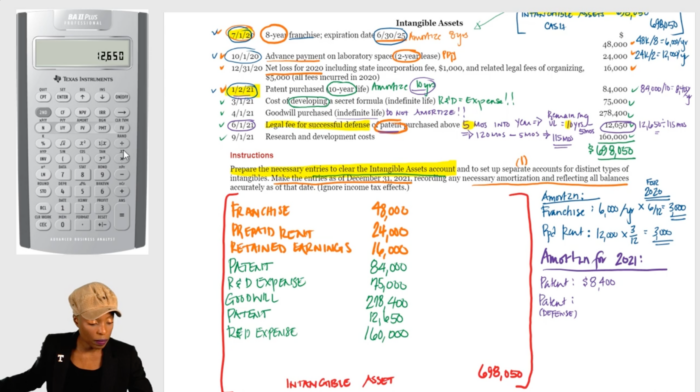 BA II Plus
12,650
TEXAS INSTRUMENTS
Intangible Assets
INTANGIBLE ASSETS 698,050
CASH
698,050
$
7/1/21 8-year franchise; expiration date 6/30/25 Amortize 8yrs 48,000 48K/8 = 6,000/yr
10/1/20 Advance payment on laboratory space (2-year lease) PPD 24,000 24K/2 = 12,000/yr
12/31/20 Net loss for 2020 including state incorporation fee, $1,000, and related legal fees of organizing, 16,000
$5,000 (all fees incurred in 2020)
1/2/21 Patent purchased (10-year life) Amortize 10 yrs 84,000 84,000/10 = 8,400/yr
3/1/21 Cost of developing a secret formula (indefinite life) R&D = Expense!! 75,000
4/1/21 Goodwill purchased (indefinite life) Do not Amortize!! 278,400
6/1/21 Legal fee for successful defense of patent purchased above 5 mos into year 12,650 12,650 ÷ 115 mos
Remaining UL = 10 yrs - 5 mos
9/1/21 Research and development costs 160,000
⇒ 120 mos - 5 mos ⇒ 115 mos
$698,050
Instructions
(1)
Prepare the necessary entries to clear the Intangible Assets account and to set up separate accounts for distinct types of
intangibles. Make the entries as of December 31, 2021, recording any necessary amortization and reflecting all balances
accurately as of that date. (Ignore income tax effects.)
FRANCHISE 48,000
PREPAID RENT 24,000
RETAINED EARNINGS 16,000
PATENT 84,000
R&D EXPENSE 75,000
GOODWILL 278,400
PATENT 12,650
R&D EXPENSE 160,000
INTANGIBLE ASSET 698,050
Amortzn: FOR 2020
Franchise: 6,000/yr x 6/12 = 3,000
Ppd Rent: 12,000 x 3/12 = 3,000
Amortzn for 2021:
Patent: $8,400
Patent:
(DEFENSE)